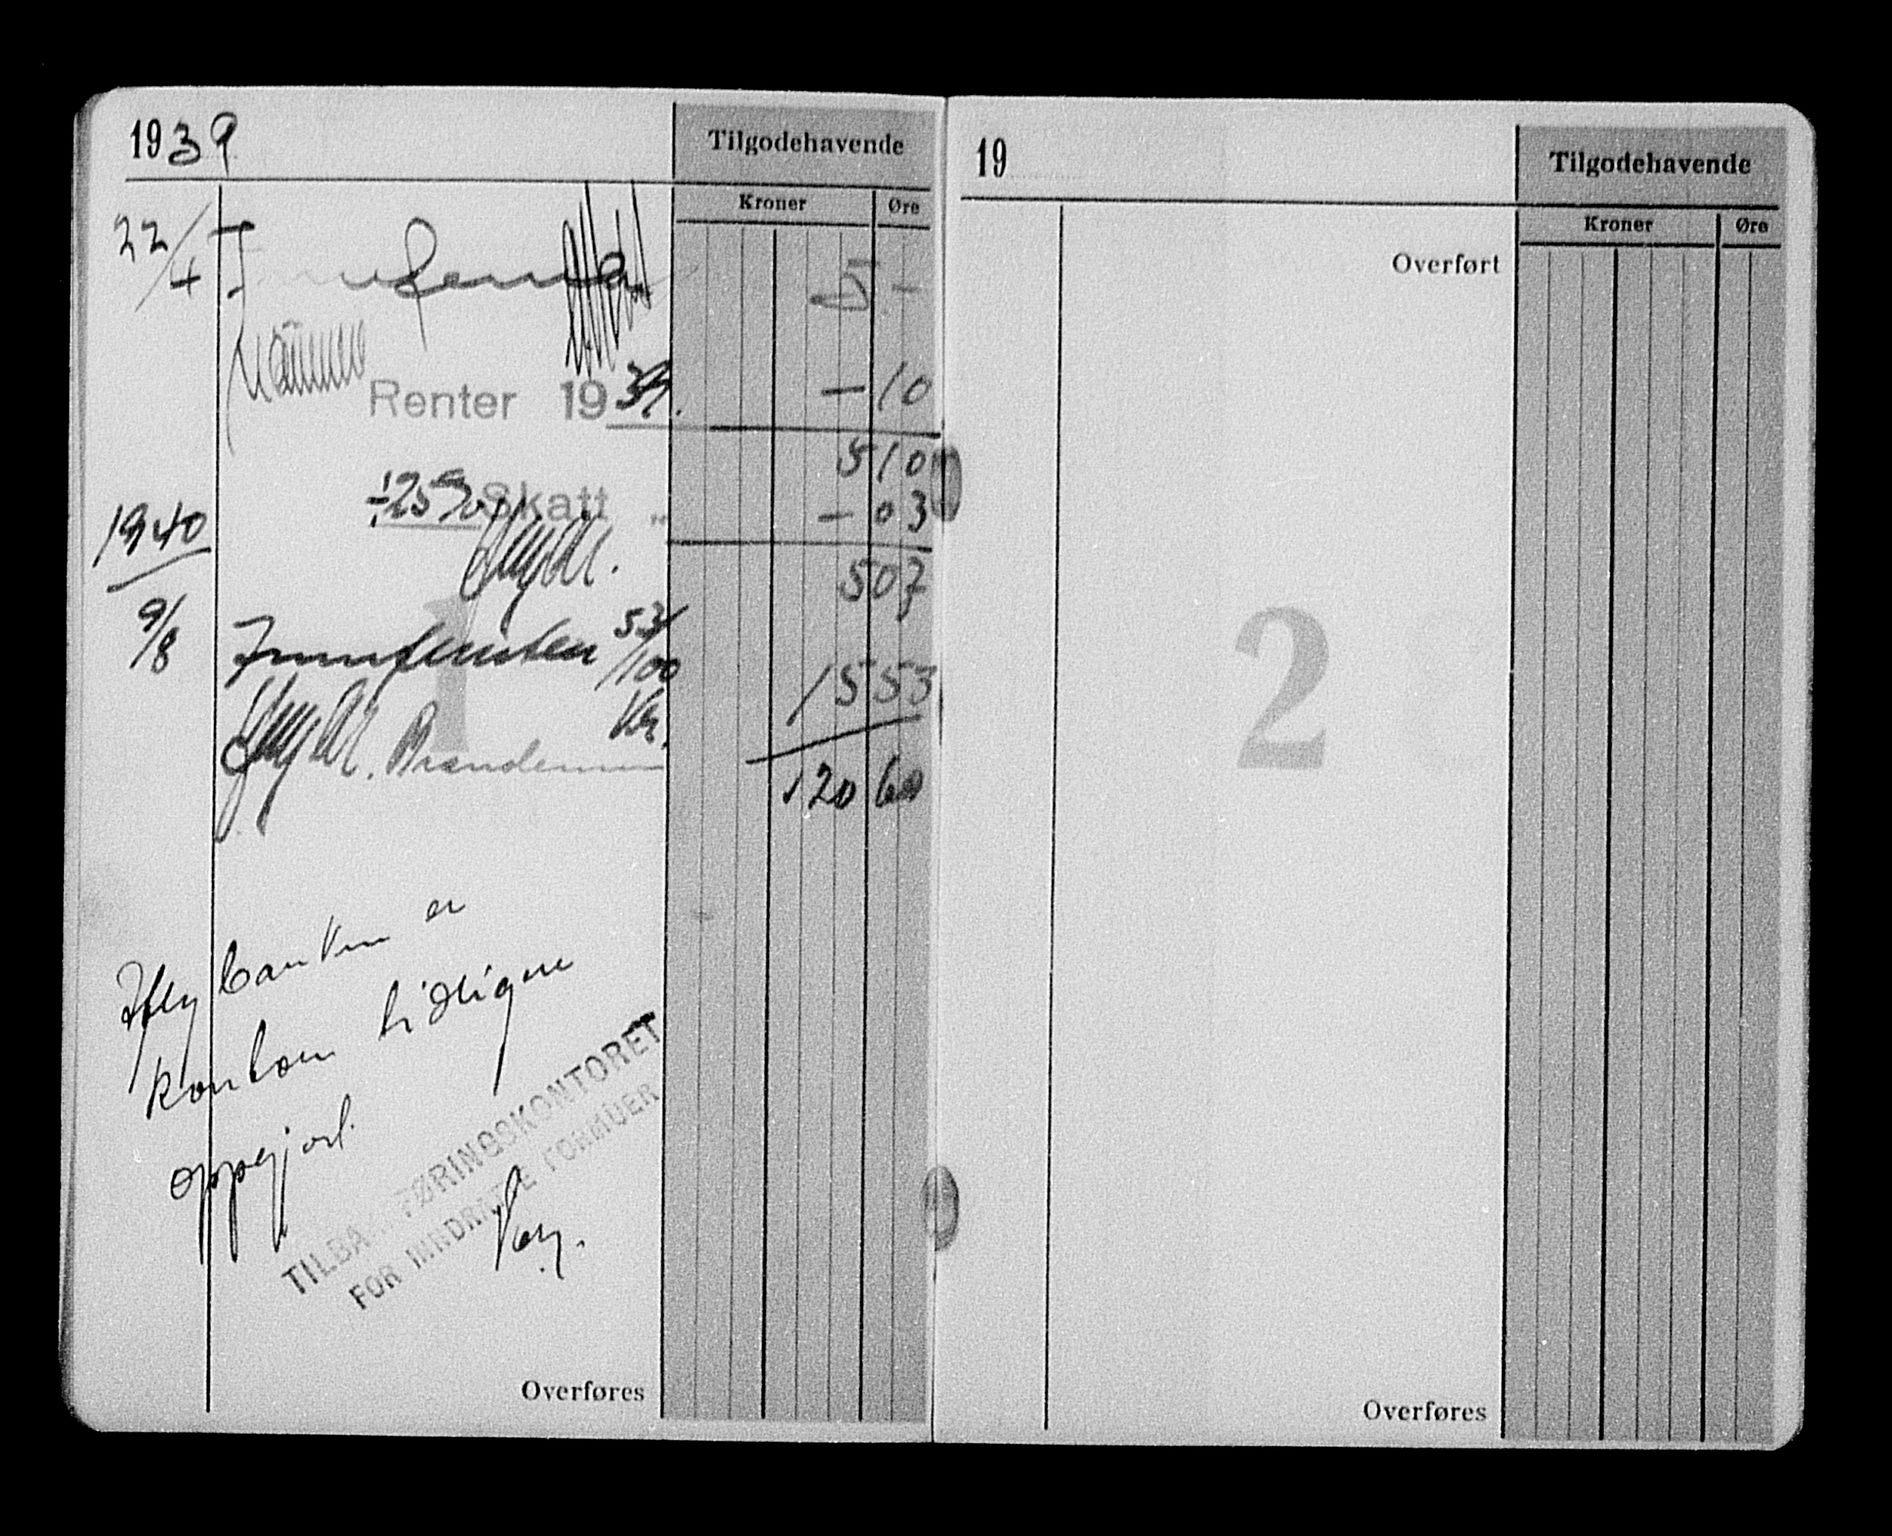 1939
Tilgodehavende
Kroner Øre
22/4 5 -
Renter 1939. - 10
5 10
÷ 25% Skatt „ - 03
1940
5 07
9/8 53/100
15 53
Kr.
1 20 60
1
Iflg banken er
kontoen tidligere
oppgjort.
TILBAKEFØRINGSKONTORET
FOR INNDRATTE FORMUER
Overføres
19
Tilgodehavende
Kroner Øre
Overført
2
Overføres